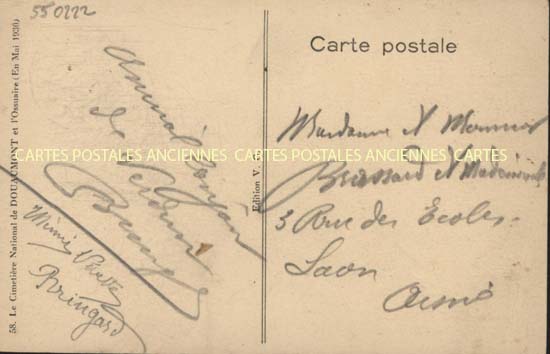 550222
58. Le Cimetière National de DOUAUMONT et l'Ossuaire (En Mai 1930)
de Verdun
Mimi
Bringard
Edition V.
CARTES POSTALES ANCIENNES CARTES POSTALES ANCIENNES CARTES POSTALES ANCIENNES
Carte postale
Madame et Monsieur
Brassard et Mademoiselle
3 Rue des Ecoles
Laon
Aisne